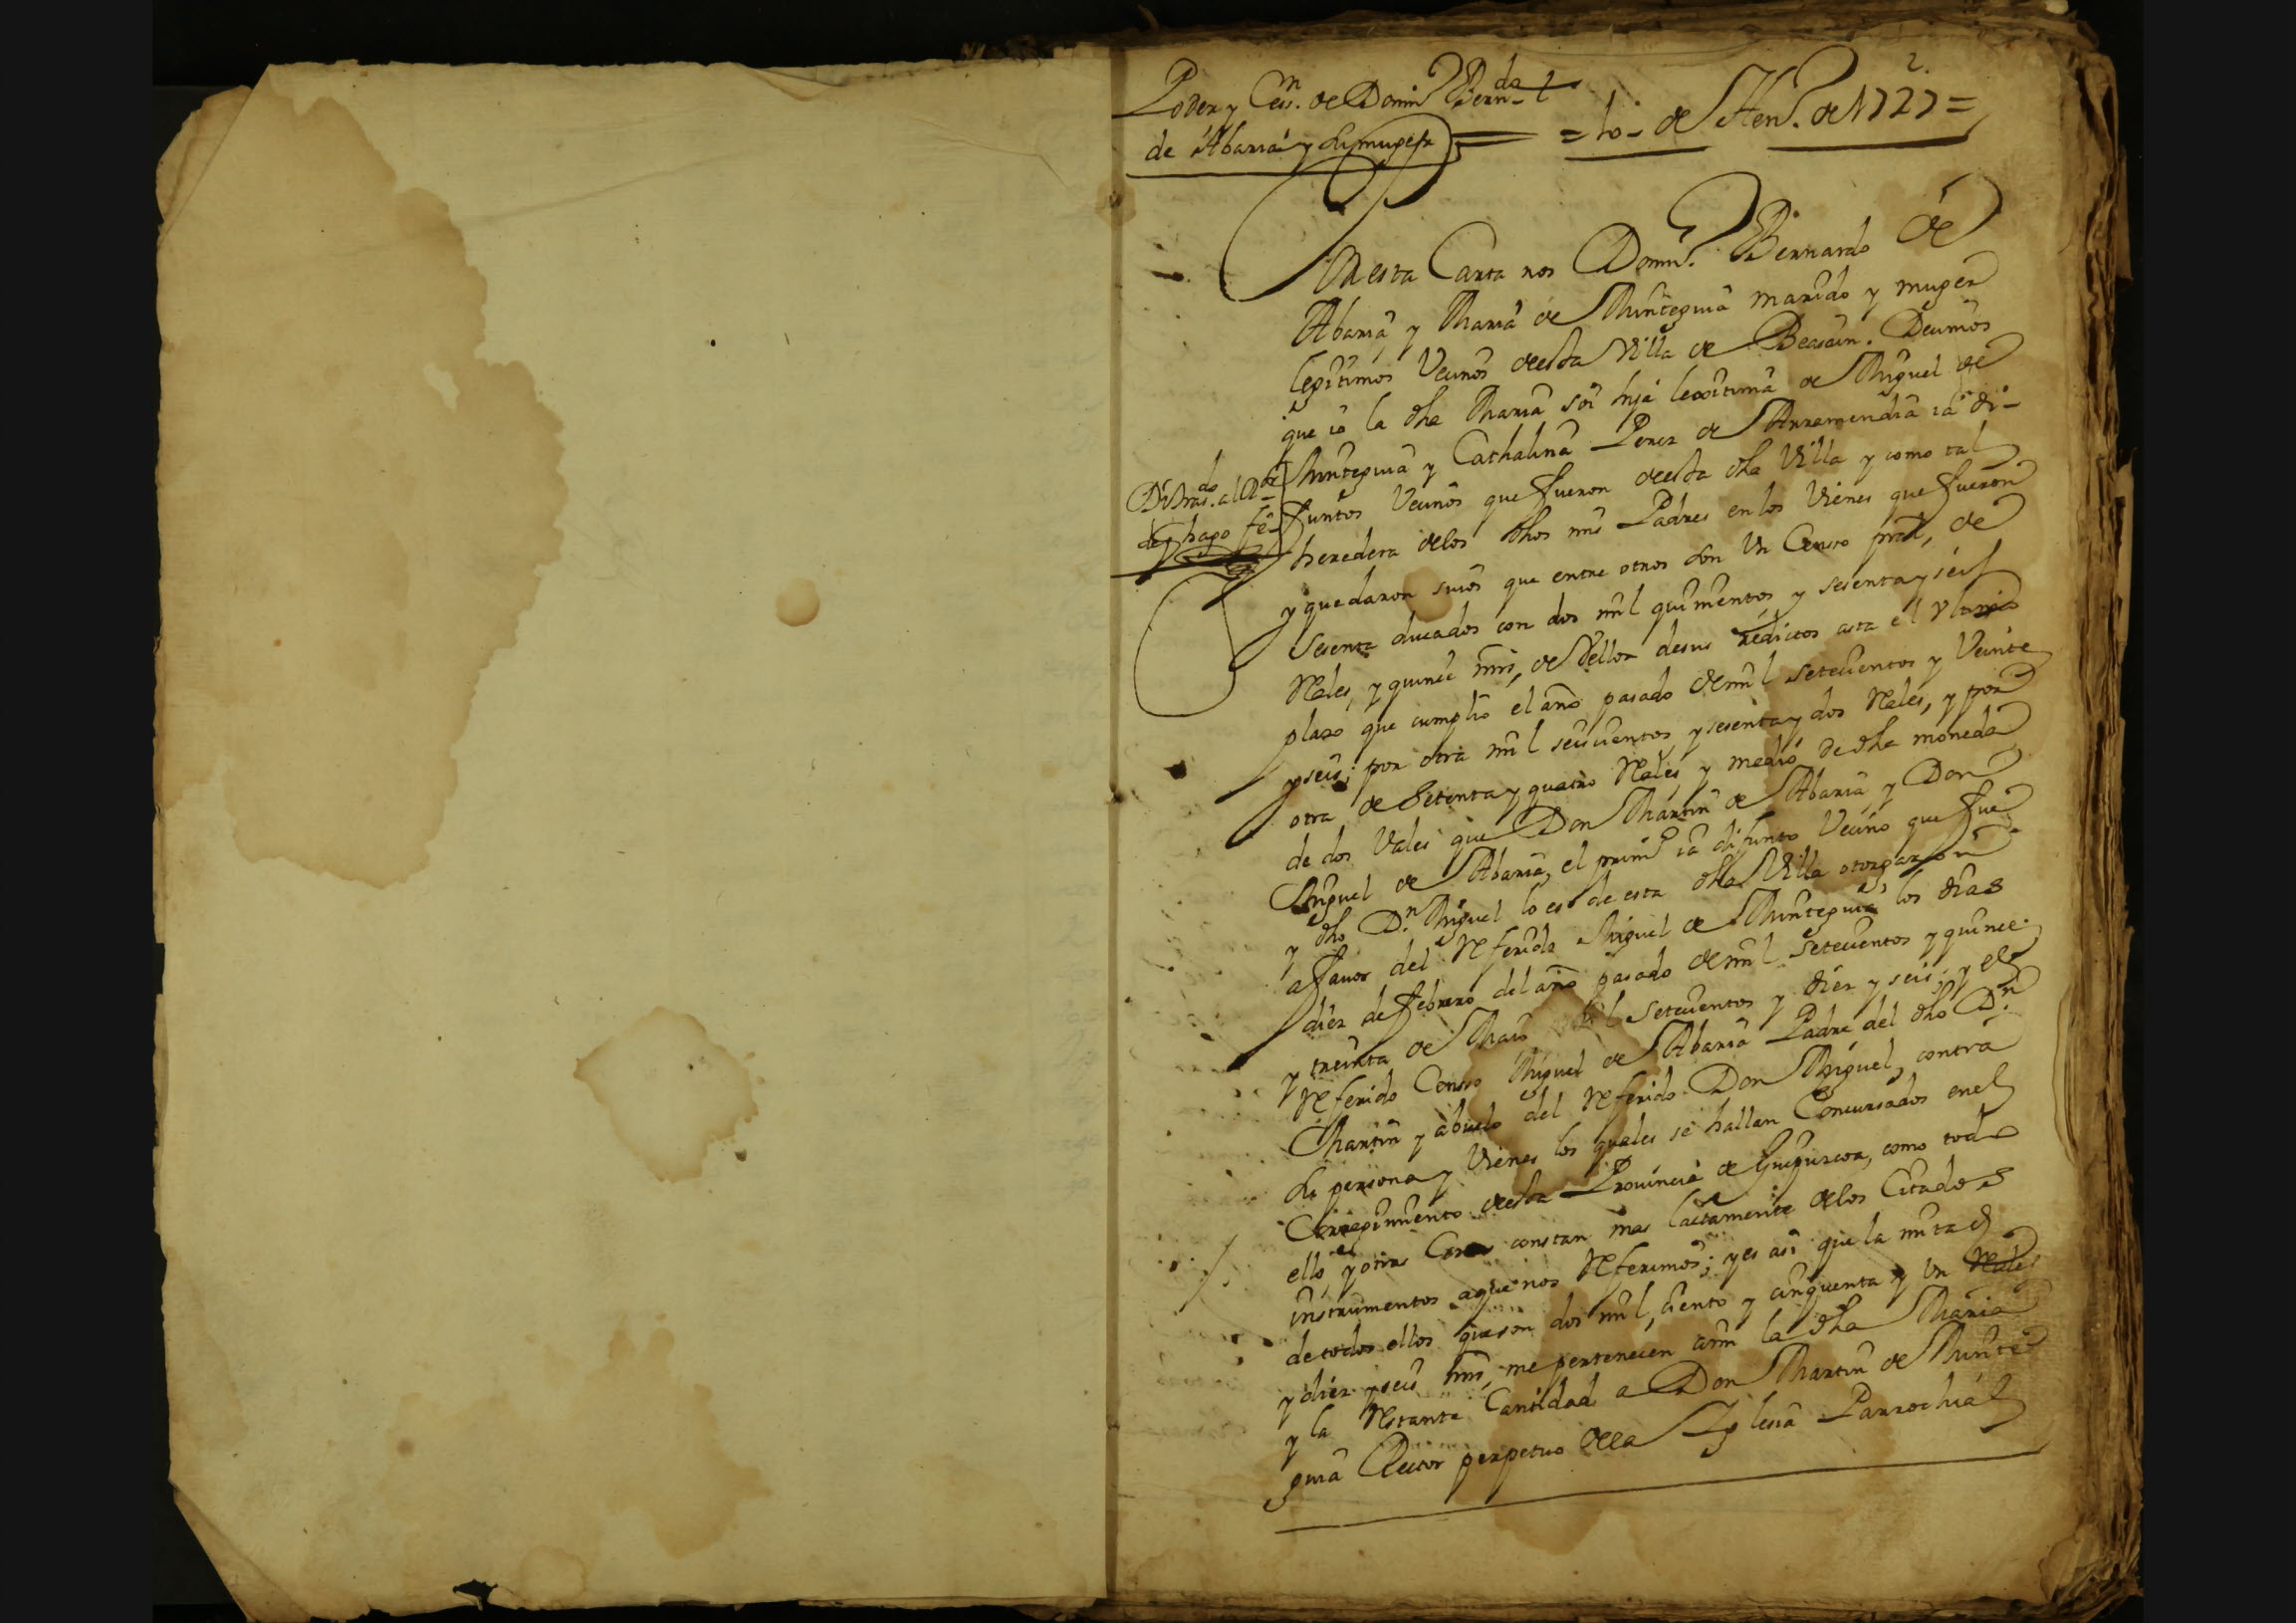 2.
Poder y Cess.n de Domin.o Bern.do
de Abaria y su muger
= 10 de Hen.o de 1727 =
En esta Carta nos Domin.o Bernardo de
Abaria, y Maria de Munteguia marido y muger
legitimos Vecinos de esta Villa de Beasain. Decimos
que io la dha Maria soi hija lexitima de Miguel de
Munteguia y Cathalina Perez de Arramendia ia di-
funtos Vecinos que fueron de esta dha Villa y como tal
heredera de los dhos mis Padres en los Vienes que fueron
y quedaron suios que entre otros son Un Censso pral, de
Sesenta ducados con dos mil quinientos y sesenta y seis
Rales, y quince mrs, de Vellon de sus redictos asta el Vltimo
plazo que cumplio el año pasado de mil setecientos y Veinte
y seis; por otra mil seiscientos y sesenta y dos Rales, y por
otra de Setenta y quatro Rales y medio de dha moneda
de dos Vales que Don Martin de Abaria y Don
Miguel de Abaria, el prim.o ia difunto Vecino que fue
y dho D.n Miguel lo es de esta dha Villa otorgaron
a favor del Referido Miguel de Munteguia los dias
diez de febrero del año pasado de mil setecientos y quince
y treinta de Maio setecientos y diez y seis; y el
Referido Censso Miguel de Abaria Padre del dho D.n
Martin y abuelo del Referido Don Miguel, contra
su persona y Vienes los quales se hallan Concursados en el
Corregimiento de esta Provincia de Guipuzcoa, como todo
ello y otras Cosas constan mas lactamente de los Citados
instrumentos a que nos Referimos; y es asi que la mitad
de todos ellos que son dos mil, ciento y cinquenta y un Rales
y diez y seis mrs, me pertenecen a mi la dha Maria
y la Restante Cantidad a Don Martin de Munte
guia Rector perpetuo de la Yglesia Parrochial
Di tras.do al
de q hago fe